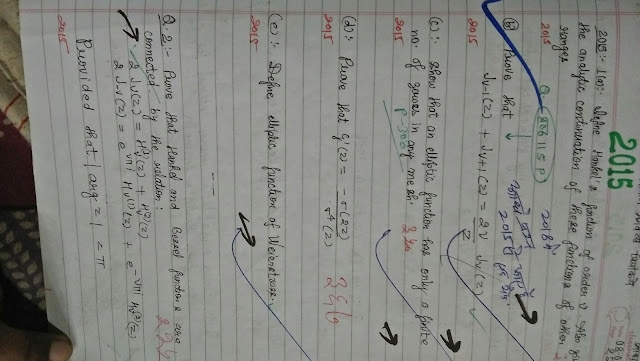 2015
2015 1(a): Define Hankel's function of order ν Also
the analytic continuation of these functions of other
ranges
2015
Q → (2061 15 P)
2018 में
(b) Prove that ↓
2015 में
2015 Jν-1(z) + Jν+1(z) = 2ν/z Jν(z)
(c):- Show that an elliptic function has only a finite
2015 no. of zeros in any mesh.
P-300
(d):- Prove that ℘'(z) = - σ(2z)/σ⁴(z)
2015
(e):- Define elliptic function of Weierstrass.
2015
Q 2:- Prove that Hankel and Bessel functions are
connected by the relation:
2 Jν(z) = Hν(1)(z) + Hν(2)(z)
2 J-ν(z) = e^νπi Hν(1)(z) + e^-νπi Hν(2)(z)
Provided that | arg z | < π
2015